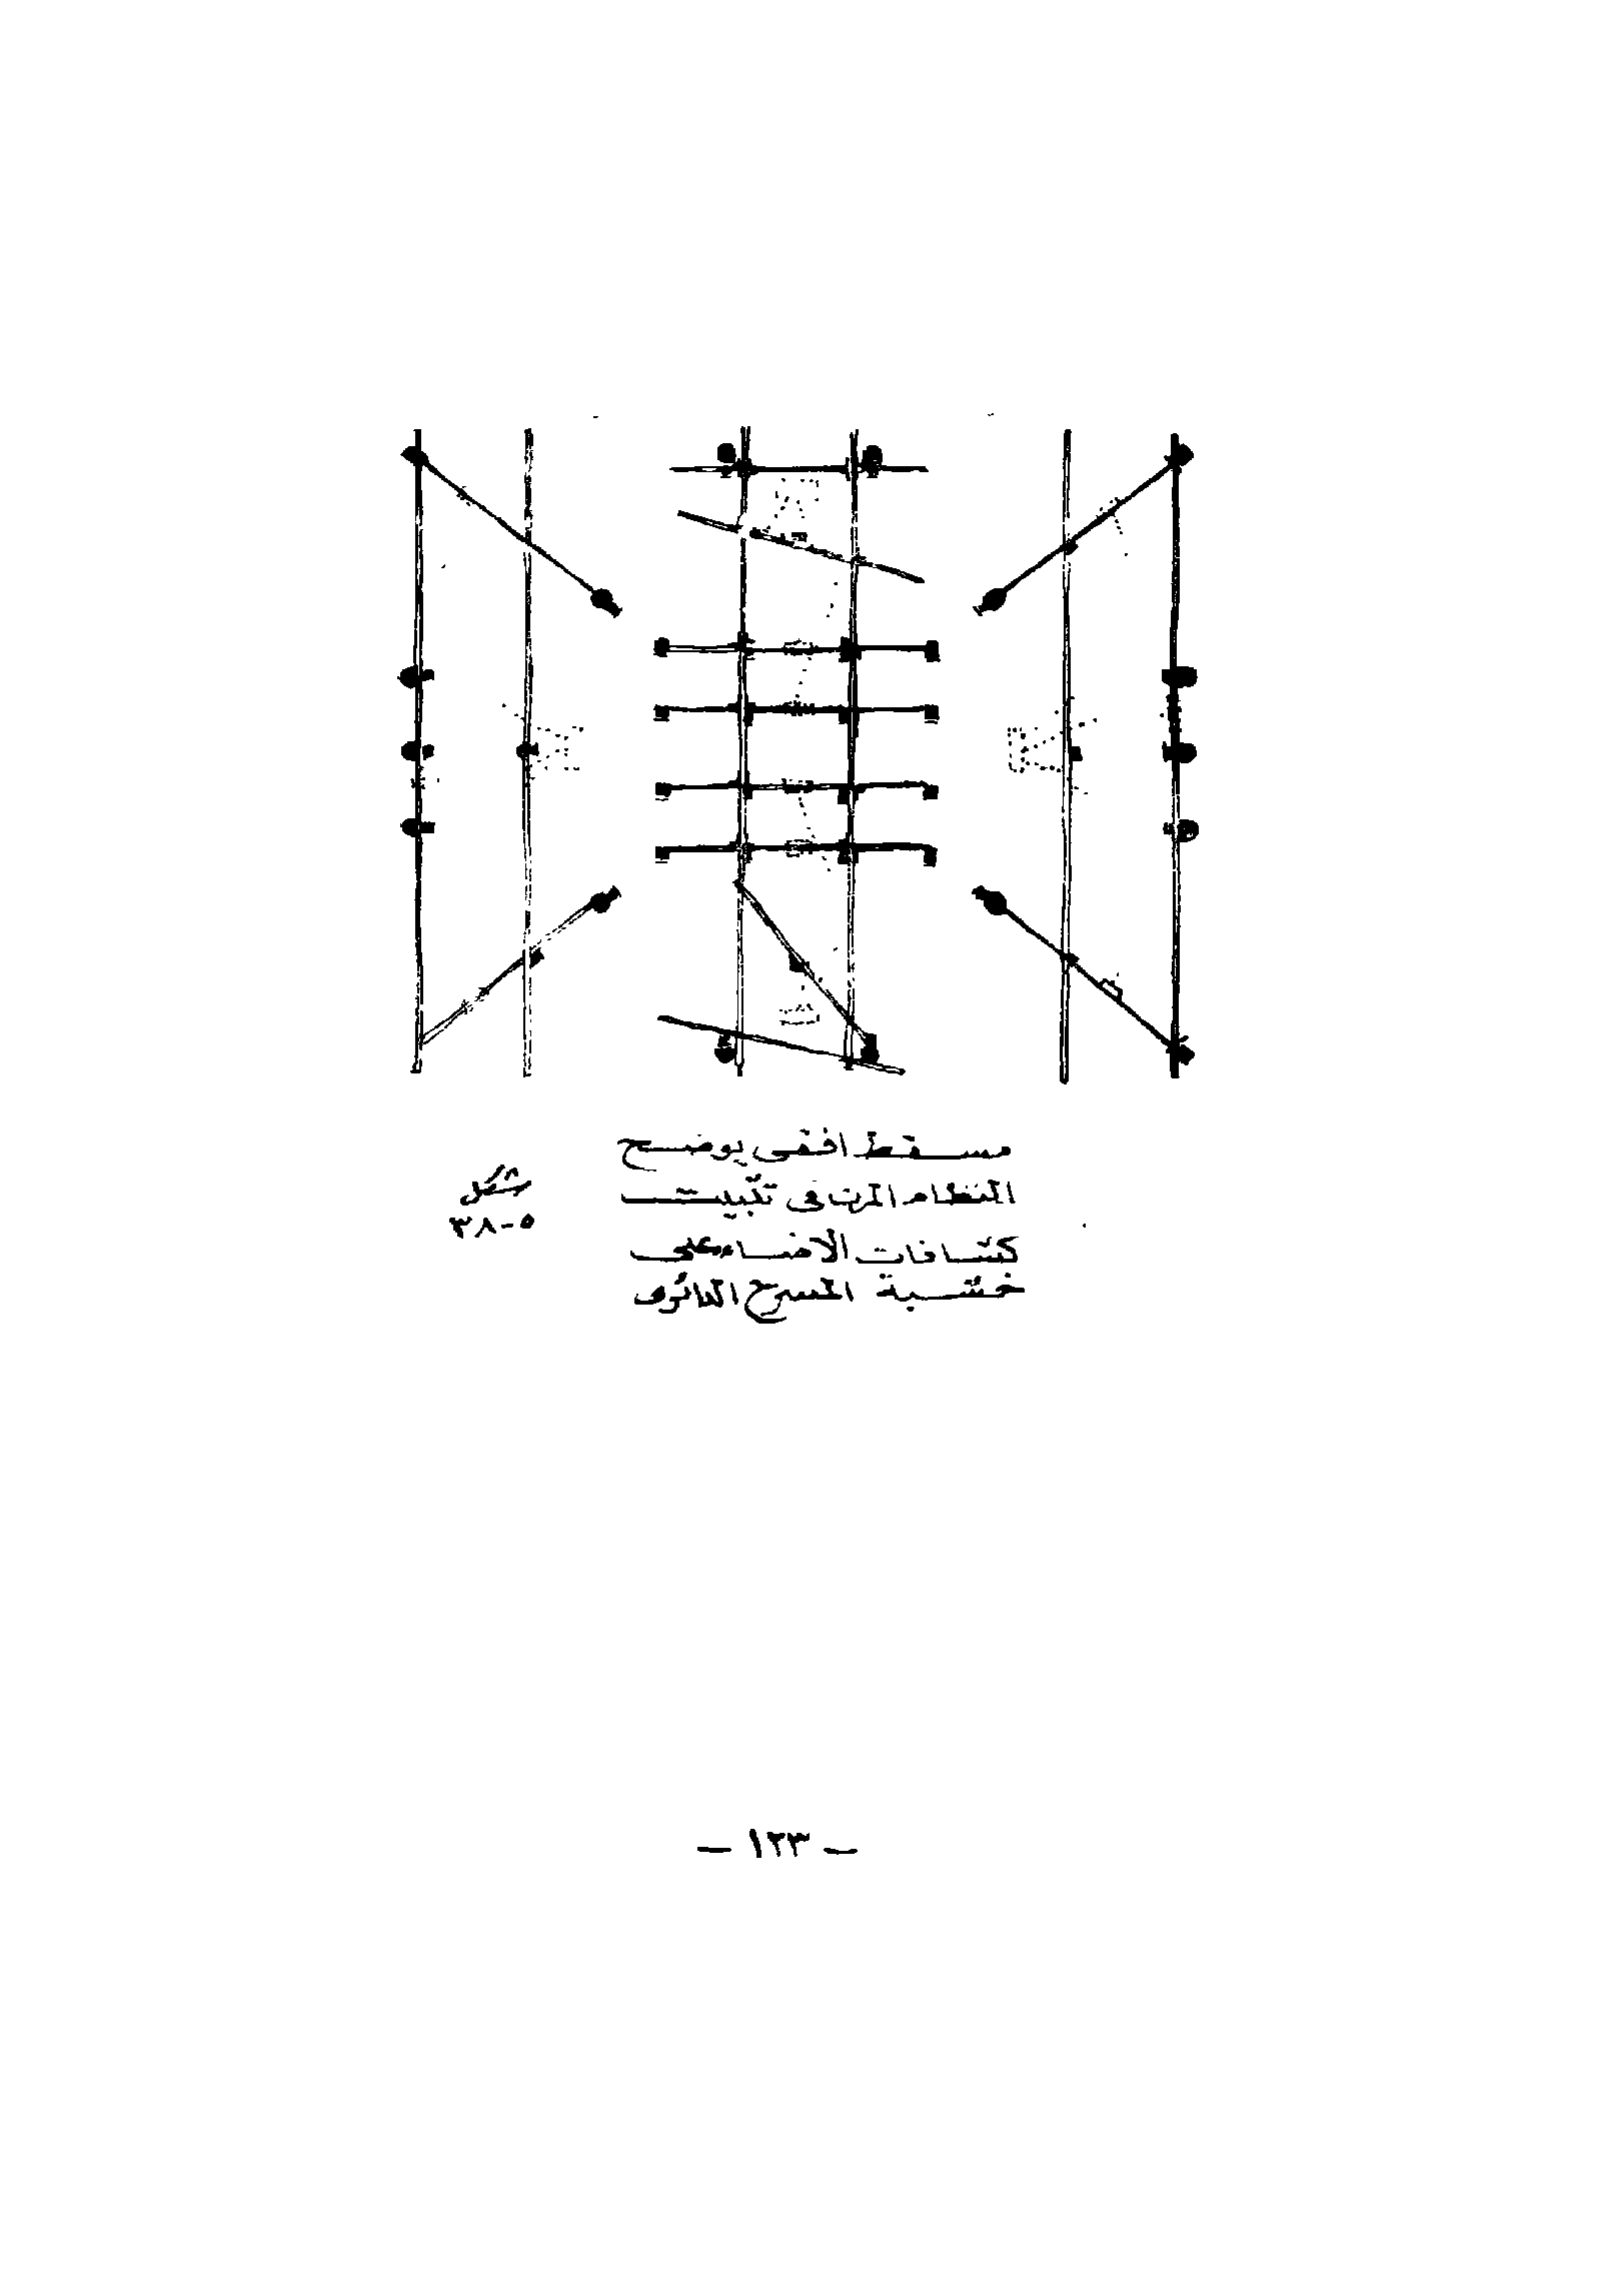 مسقط افقى يوضح
النظام المرن فى تثبيت
كشافات الاضاءه على
خشبة المسرح الدائرى
شكل
٣٨-٥
— ١٢٣ —